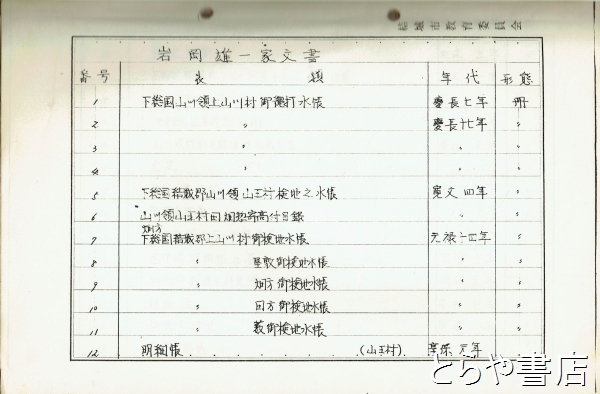 結城市教育委員会
岩岡雄一家文書
番号 表題 年代 形態
1 下総国山川領上山川村御縄打水帳 慶長七年 冊
2 〃 慶長十七年 〃
3 〃 〃 〃
4 〃 〃 〃
5 下総国結城郡山川領山王村検地之水帳 寛文四年 〃
6 山川領山王村田畑惣寄高付目録 〃 〃
7 下総国結城郡上山川村畑方御検地水帳 元禄十四年 〃
8 〃 屋敷御検地水帳 〃 〃
9 〃 畑方御検地水帳 〃 〃
10 〃 田方御検地水帳 〃 〃
11 〃 藪御検地水帳 〃 〃
12 明細帳 (山王村) 享保元年 〃
とらや書店